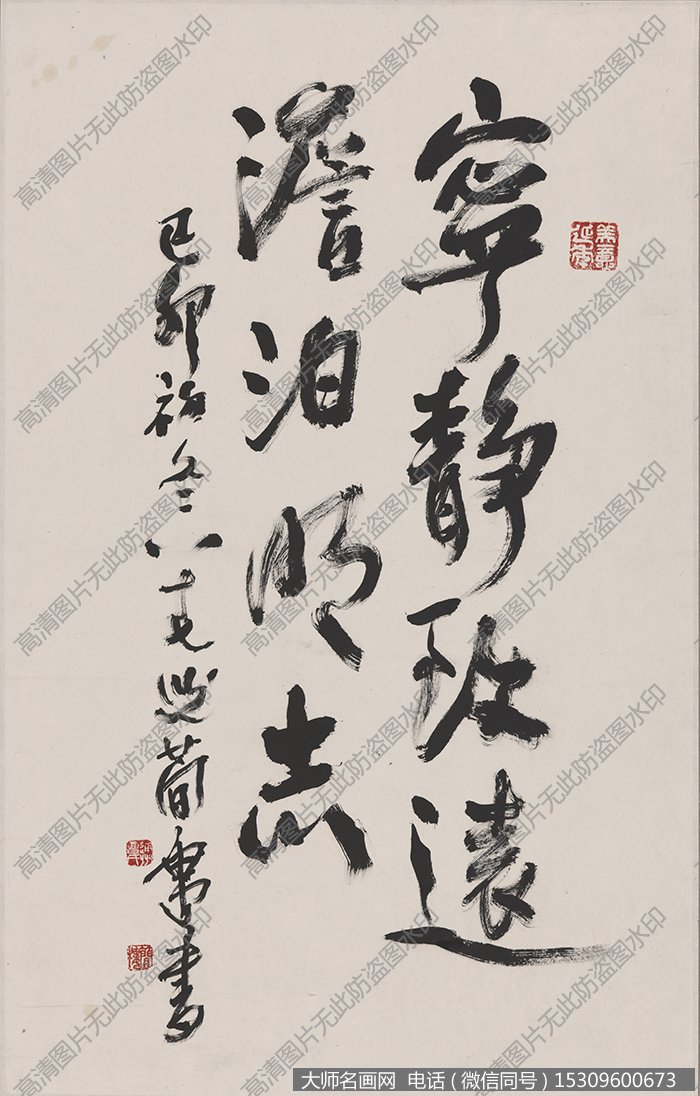 寧靜致遠
澹泊明志
己卯初冬八十老叟蕳㢲書
大师名画网 电话（微信同号）15309600673
高清图片无此防盗图水印